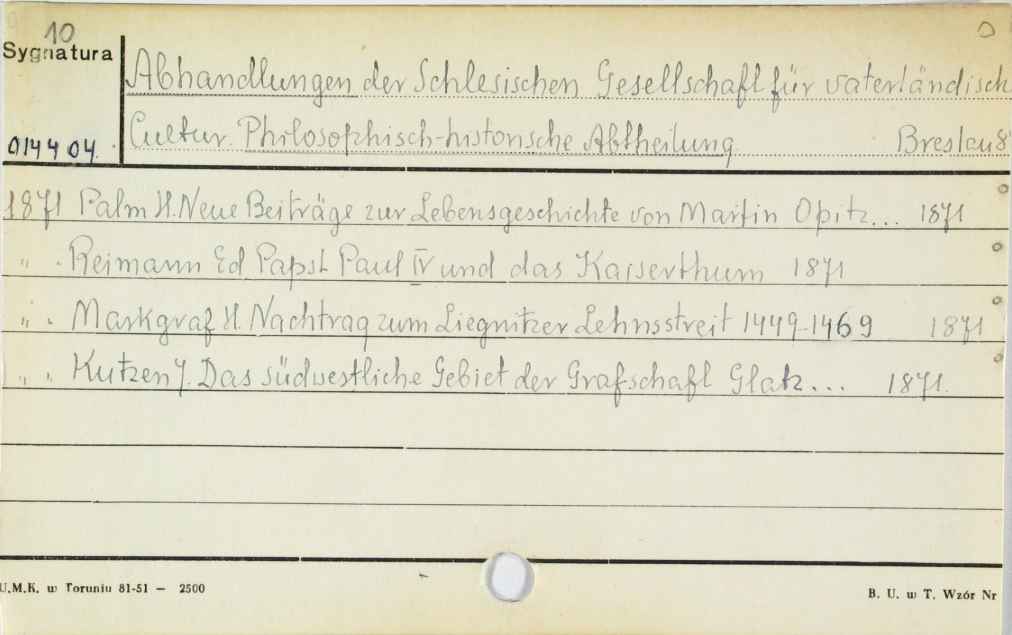 10
Sygnatura
Abhandlungen der Schlesischen Gesellschaft für vaterländisch
014404.
Cultur. Philosophisch-historische Abtheilung Breslau 8°
1871 Palm H. Neue Beiträge zur Lebensgeschichte von Martin Opitz... 1871
" . Reimann Ed Papst Paul IV und das Kaiserthum 1871
" . Markgraf H. Nachtrag zum Liegnitzer Lehnsstreit 1449-1469 1871
" . Kutzen J. Das südwestliche Gebiet der Grafschaft Glatz... 1871.
U.M.K. w Toruniu 81-51 — 2500
B. U. w T. Wzór Nr